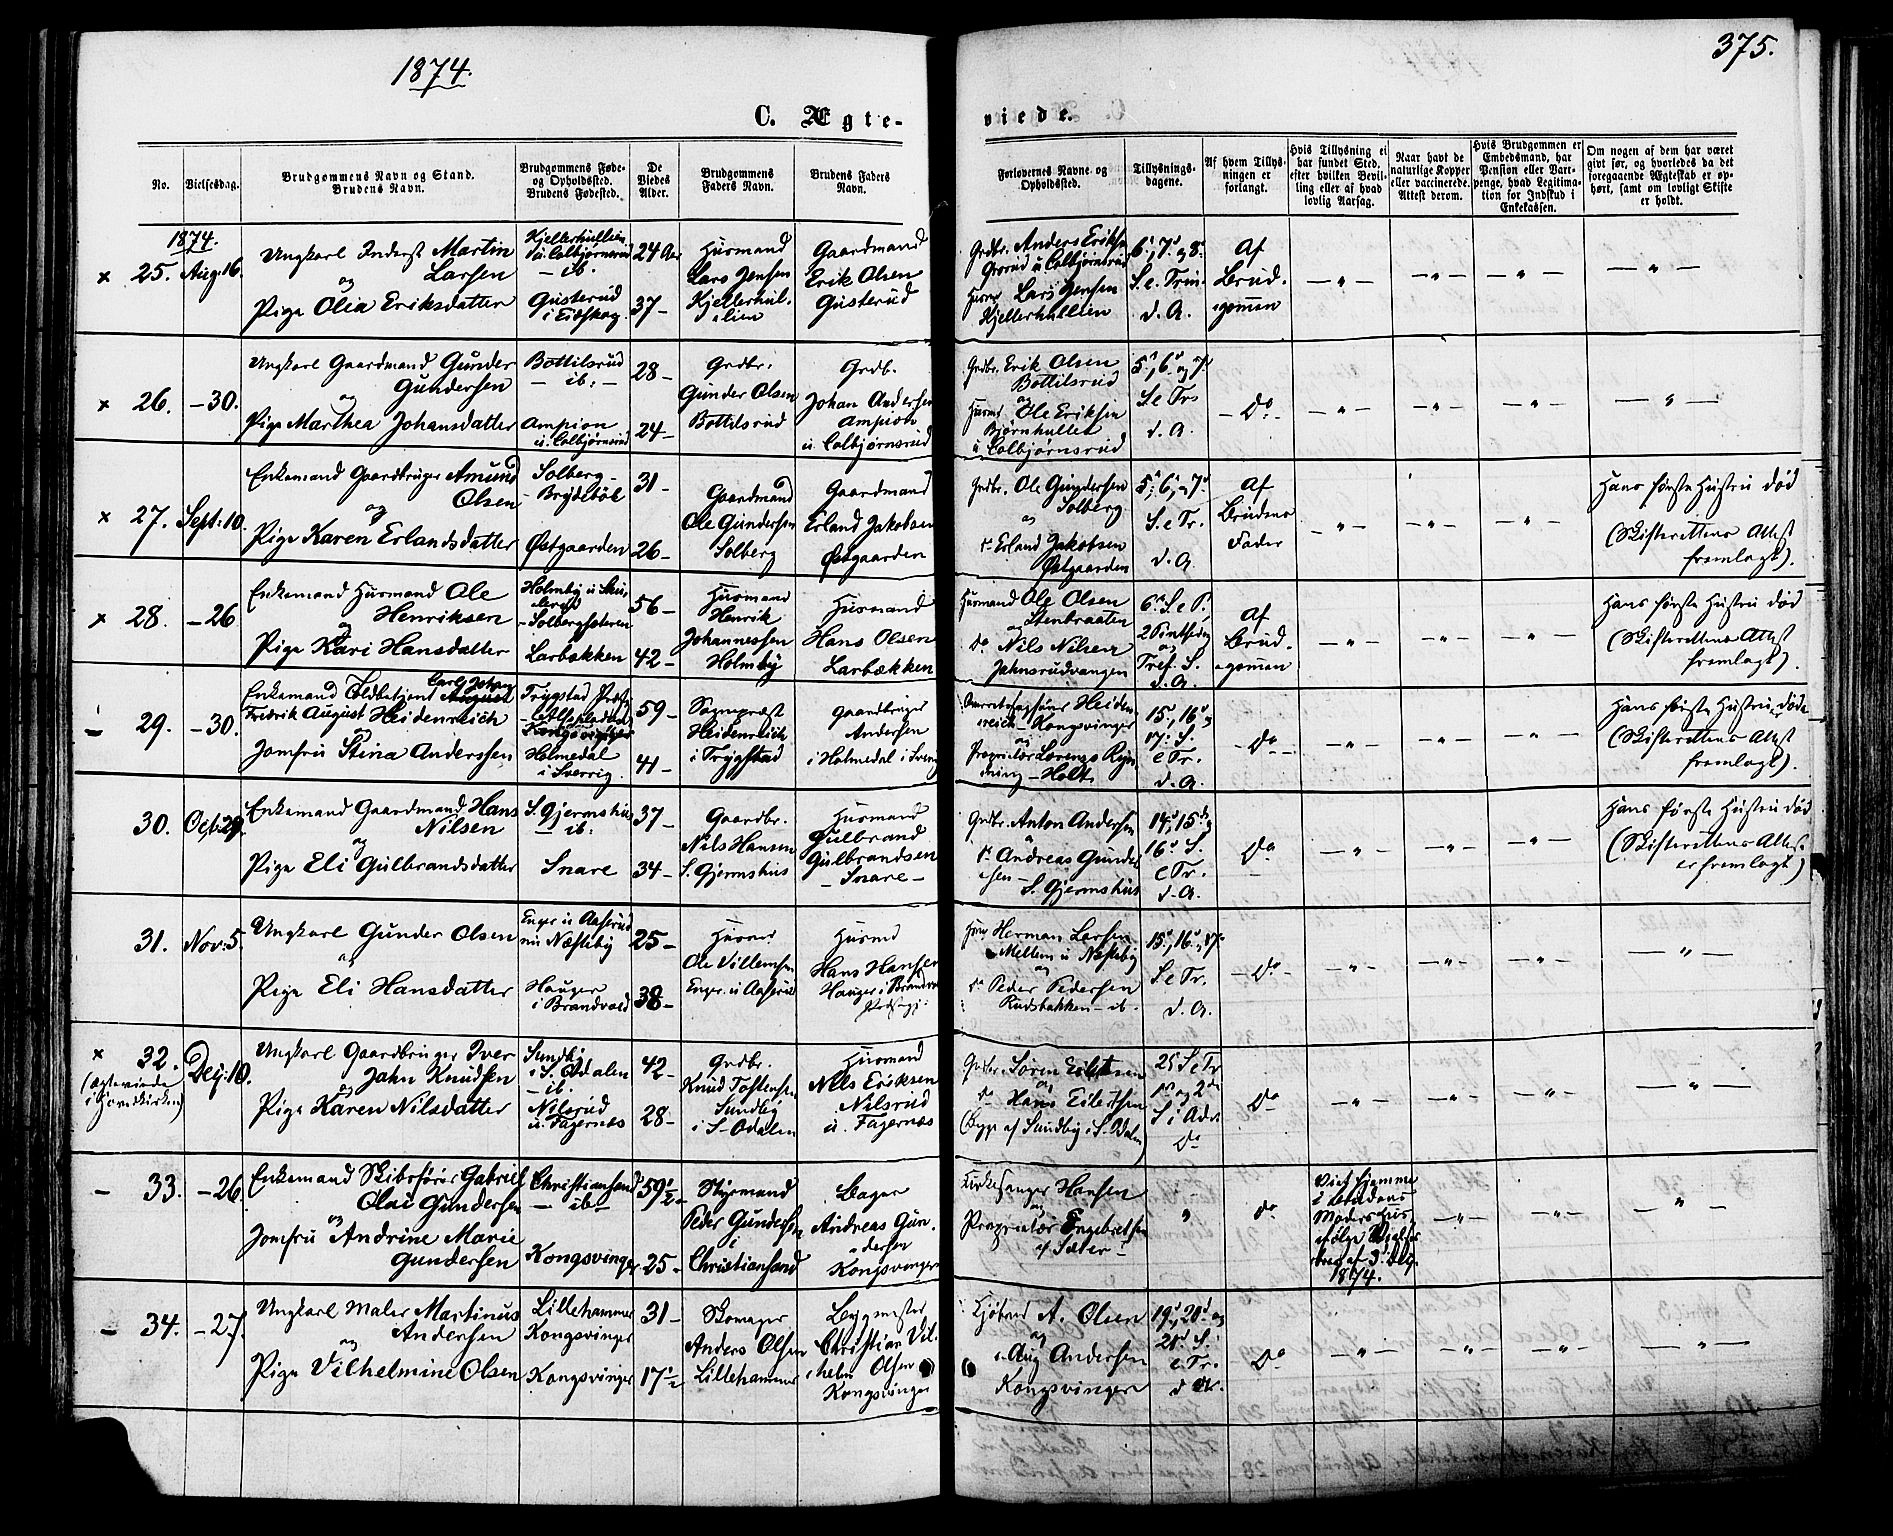 1874.
375.
C. Ægte-
viede.
No.
Vielsesdag.
Brudgommens Navn og Stand.
Brudens Navn.
Brudgommens Føde-
og Opholdssted.
Brudens Fødested.
De
Viedes
Alder.
Brudgommens
Faders Navn.
Brudens Faders
Navn.
Forlovernes Navne og
Opholdssted.
Tillysnings-
dagene.
Af hvem Tillys-
ningen er
forlangt.
Hvis Tillysning ei
har fundet Sted,
efter hvilken Bevil-
ling eller af hvad
lovlig Aarsag.
Naar havt de
naturlige Kopper
eller vaccinerede.
Attest derom.
Hvis Brudgommen er
Embedsmand, har
Pension eller Vart-
penge, hvad Legitima-
tion for Indskud i
Enkekassen.
Om nogen af dem har været
givt før, og hvorledes da det
foregaaende Ægteskab er op-
hørt, samt om lovligt Skifte
er holdt.
1874.
x 25. Aug. 16.
Ungkarl Inderst Martin
Larsen
og
Pige Olia Eriksdatter
Kjellerhullien
u. Colbjørnsrud
- ib.
Gusterud
i Eidskog.
24 Aar
37 -
Husmand
Lars Jensen
Kjellerhul-
lien
Gaardmand
Erik Olsen
Gusterud
Grdbr. Anders Eriksen
Grorud u Colbjørnsrud
Husm. Lars Jensen
Kjellerhullien
6, 7 og 8
S. e. Trin.
d. A.
Af
Brud-
gommen
x 26. - 30.
Ungkarl Gaardmand Gunder
Gundersen
og
Pige Marthea Johansdatter
Bottilsrud
- ib: -
Ampion
u. Colbjørnsrud
28 -
24 -
Grdbr.
Gunder Olsen
Bottilsrud
Grdb.
Johan Andersen
Ampion
u. Colbjørnsrud
Grdbr. Erik Olsen
Bottilsrud
og
Husm. Ole Eriksen
Bjørnhullet
u Colbjørnsrud
5, 6 og 7
S. e Tr.
d. A.
- Do -
x 27. Sept: 10.
Enkemand Gaardbruger Amund
Olsen
og
Pige Karen Erlandsdatter
Solberg -
- Brydebøl
Østgaarden
31 -
26 -
Gaardmand
Ole Gundersen
Solberg
Gaardmand
Erland Jakobsen
Østgaarden
Grdbr. Ole Gundersen
Solberg
og
Erland Jakobsen
Østgaarden
5, 6 og 7
S. e Tr.
d. A.
Af
Brudens
Fader
Hans første Hustru død
(Skifterettens Attest
fremlagt).
x 28. - 26
Enkemand Husmand Ole
Henriksen
og
Pige Kari Hansdatter
Holmby u
- Solbergseteren
Larbækken
56 -
42 -
Husmand
Henrik
Johannessen
Holmby
Husmand
Hans Olsen
Larbækken
Husmand Ole Olsen
Stenbraaten
og
do Nils Nilsen
Jahnsrudvangen
6 S. e P.
2 Pintsedag
og
Tref. S.
d. A.
Af
Brud-
gommen
Hans første Hustru død
(Skifterettens Attest
fremlagt).
- 29. - 30.
Enkemand Toldbetjent Carl Johan
Fredrik August Heidenreich
Jomfru Stina Anderssen
Trygstad Præstg.
Kongsvinger
Holmedal
i Sverrig.
59 -
41 -
Sognepræst
Heidenreich
i Trygstad
Gaardbruger
Andersen
i Holmedal i Sverrig
Overretssagfører Heiden-
reich - Kongsvinger
og
Proprietær Lorentz
- Holt
15, 16 og
17 S.
e Tr.
d. A.
- Do -
Hans første Hustru døde
(Skifterettens Attest
fremlagt).
30. Oct: 29.
Enkemand Gaardmand Hans
Nilsen
og
Pige Eli Gulbrandsdatter
S. Gjermshus
- ib:
Snare
37 -
34 -
Gaardbr.
Nils Hansen
S. Gjermshus
Husmand
Gulbrand
Gulbrandsen
- Snare -
Grdbr. Anton Andersen
Andreas Gunder-
sen -
S. Gjermshus
14, 15 og
16 S.
e Tr.
d. A.
Do
Hans første Hustru død
(Skifterettens Attest
er fremlagt)
31. Nov: 5.
Ungkarl Gunder Olsen
og
Pige Eli Hansdatter
Enger u Aaserud
nu Næsteby
Hauger
i Brandvold
25 -
38 -
Husmd
Ole Villemsen
Enger u Aaserud
Husmd
Hans Hansen
Hauger i Brandvold
Præstegj.
Husm. Herman Larsen
Mellem u Næsteby
og
do Peder Pedersen
Rudsbakken - ib.
15, 16 og 17
S. e Tr.
d. A.
- Do -
x 32. Dez: 10.
(ægteviede
i Hovedkirken)
Ungkarl Gaardbruger Iver
Jahn Knudsen
og
Pige Karen Nilsdatter
Sundby
i S. Odalen
- ib.
Nilsrud
u. Fagernæs
42 -
28 -
Grdbr.
Knud Tostensen
Sundby
i S. Odalen
Husmand
Nils Eriksen
Nilsrud
u. Fagernæs
Grdbr. Søren Eilertsen
og
do Hans Eilertsen
(Begge af Sundby i S. Odalen)
25 S. e Tr
1 og 2
S i Adv.
Do
Do
- 33. - 26.
Enkemand Skibsfører Gabriel
Olai Gundersen
og
Jomfru Andrine Marie
Gundersen
Christiansand
- ib -
Kongsvinger
59 1/2 -
25 -
Styrmand
Peder Gundersen
i
Christiansand
Bager
Andreas Gun-
dersen
Kongsvinger
Kirkesanger Hansen
og
Proprietær Engebretsen
af Sæter
do
Viet hjemme
i Brudens
Moders Hus
ifølge
brev af 3 Dez.
1874.
- 34. - 27.
Ungkarl Maler Martinus
Andersen
og
Pige Vilhelmine Olsen
Lillehammer
Kongsvinger
Kongsvinger
31 -
17 1/2
Skomager
Anders Olsen
Lillehammer
Bygmester
Christian Vil-
helm Olsen
Kongsvinger
Kjøbmd A. Olsen
og
Aug Andersen
Kongsvinger
19, 20 og
21 S.
e Tr.
d A.
Do